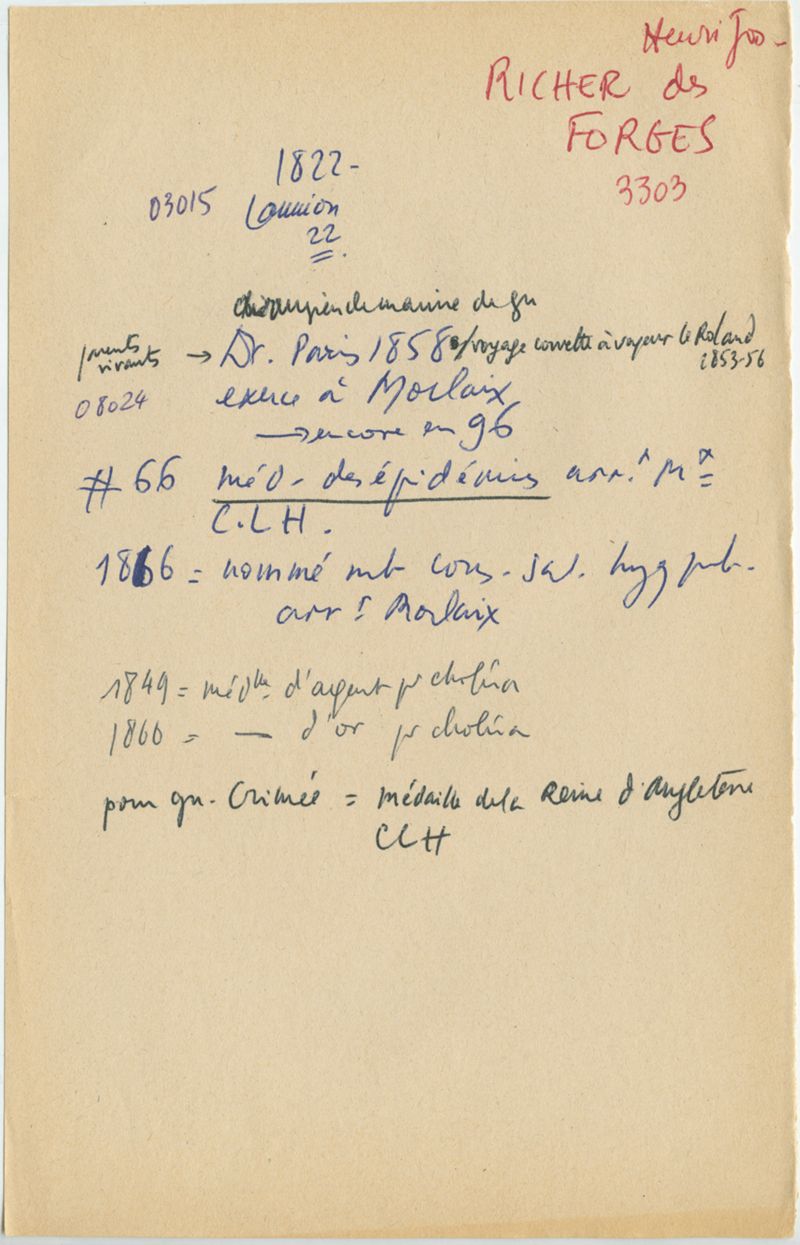 Henri Jos-
RICHER des
FORGES
3303
1822-
03015 Lannion
22
chirurgien de marine de gu
parents vivants → Dr. Paris 1858 s/voyage corvette à vapeur le Roland
1853-56
08024 exerce à Morlaix
→ encore en 96
# 66 méd. des épidémies arr.t Mx
C.L H.
1866 = nommé mb cons. sal. hyg pub.
arr.t Morlaix
1849 = médlle d'argent pr choléra
1866 = — d'or pr choléra
pour gu. Crimée = médaille de la Reine d'Angleterre
CLH